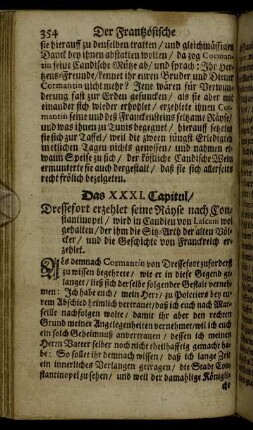 354 Der Frantzösische
sie hierauff zu denselben tratten / und gleichmässigen
Danck bey ihnen abstatten wolten / da zog Cormantin
seine Candische Mütze ab / und sprach: Ihr Hertzens-Freunde
/ kennet ihr euren Bruder und Diener
Cormantin nicht mehr? Jene wären für Verwunderung
fast zur Erden gesuncken / als sie aber mit
einander sich wieder erhohlet / erzehlete ihnen Cormantin
seine und deß Franckensteins seltzame Räyse /
und was ihnen zu Tunis begegnet / hierauff setzten
sie sich zur Taffel / weil die zween jüngst Erledigten
in etlichen Tagen nichts gewust / und nahmen etwann
Speise zu sich / der köstliche Candische Wein
ermunterte sie auch dergestalt / daß sie sich allerseits
recht frölich bezeigeten.
Das XXXI. Capitul /
Dressefort erzehlet seine Räyse nach Constantinopel
/ wird in Candien von Lalean wol
gehalten / der ihm die Sitz-Arth der alten Völcker
/ und die Geschichte von Franckreich erzehlet.
Als demnach Cormantin von Dressefort zuforderst
zu wissen begehrete / wie er in diese Gegend gelanget
/ ließ sich derselbe folgender Gestalt vernehmen:
Ich habe euch / mein Herr / zu Poictiers bey eurem
Abschied heimlich vertrauet / daß ich euch nach Marseille
nachfolgen wolte / damit ihr aber den rechten
Grund meiner Angelegenheiten vernehmet / wil ich euch
ein solch Geheimnuß anvertrauen / dessen ich meinen
Herrn Vatter selber noch nicht theilhafftig gemacht habe:
So sollet ihr demnach wissen / daß ich lange Zeit
ein innerliches Verlangen getragen / die Stadt Constantinopel
zu sehen / und weil der damahlige Königli-
che